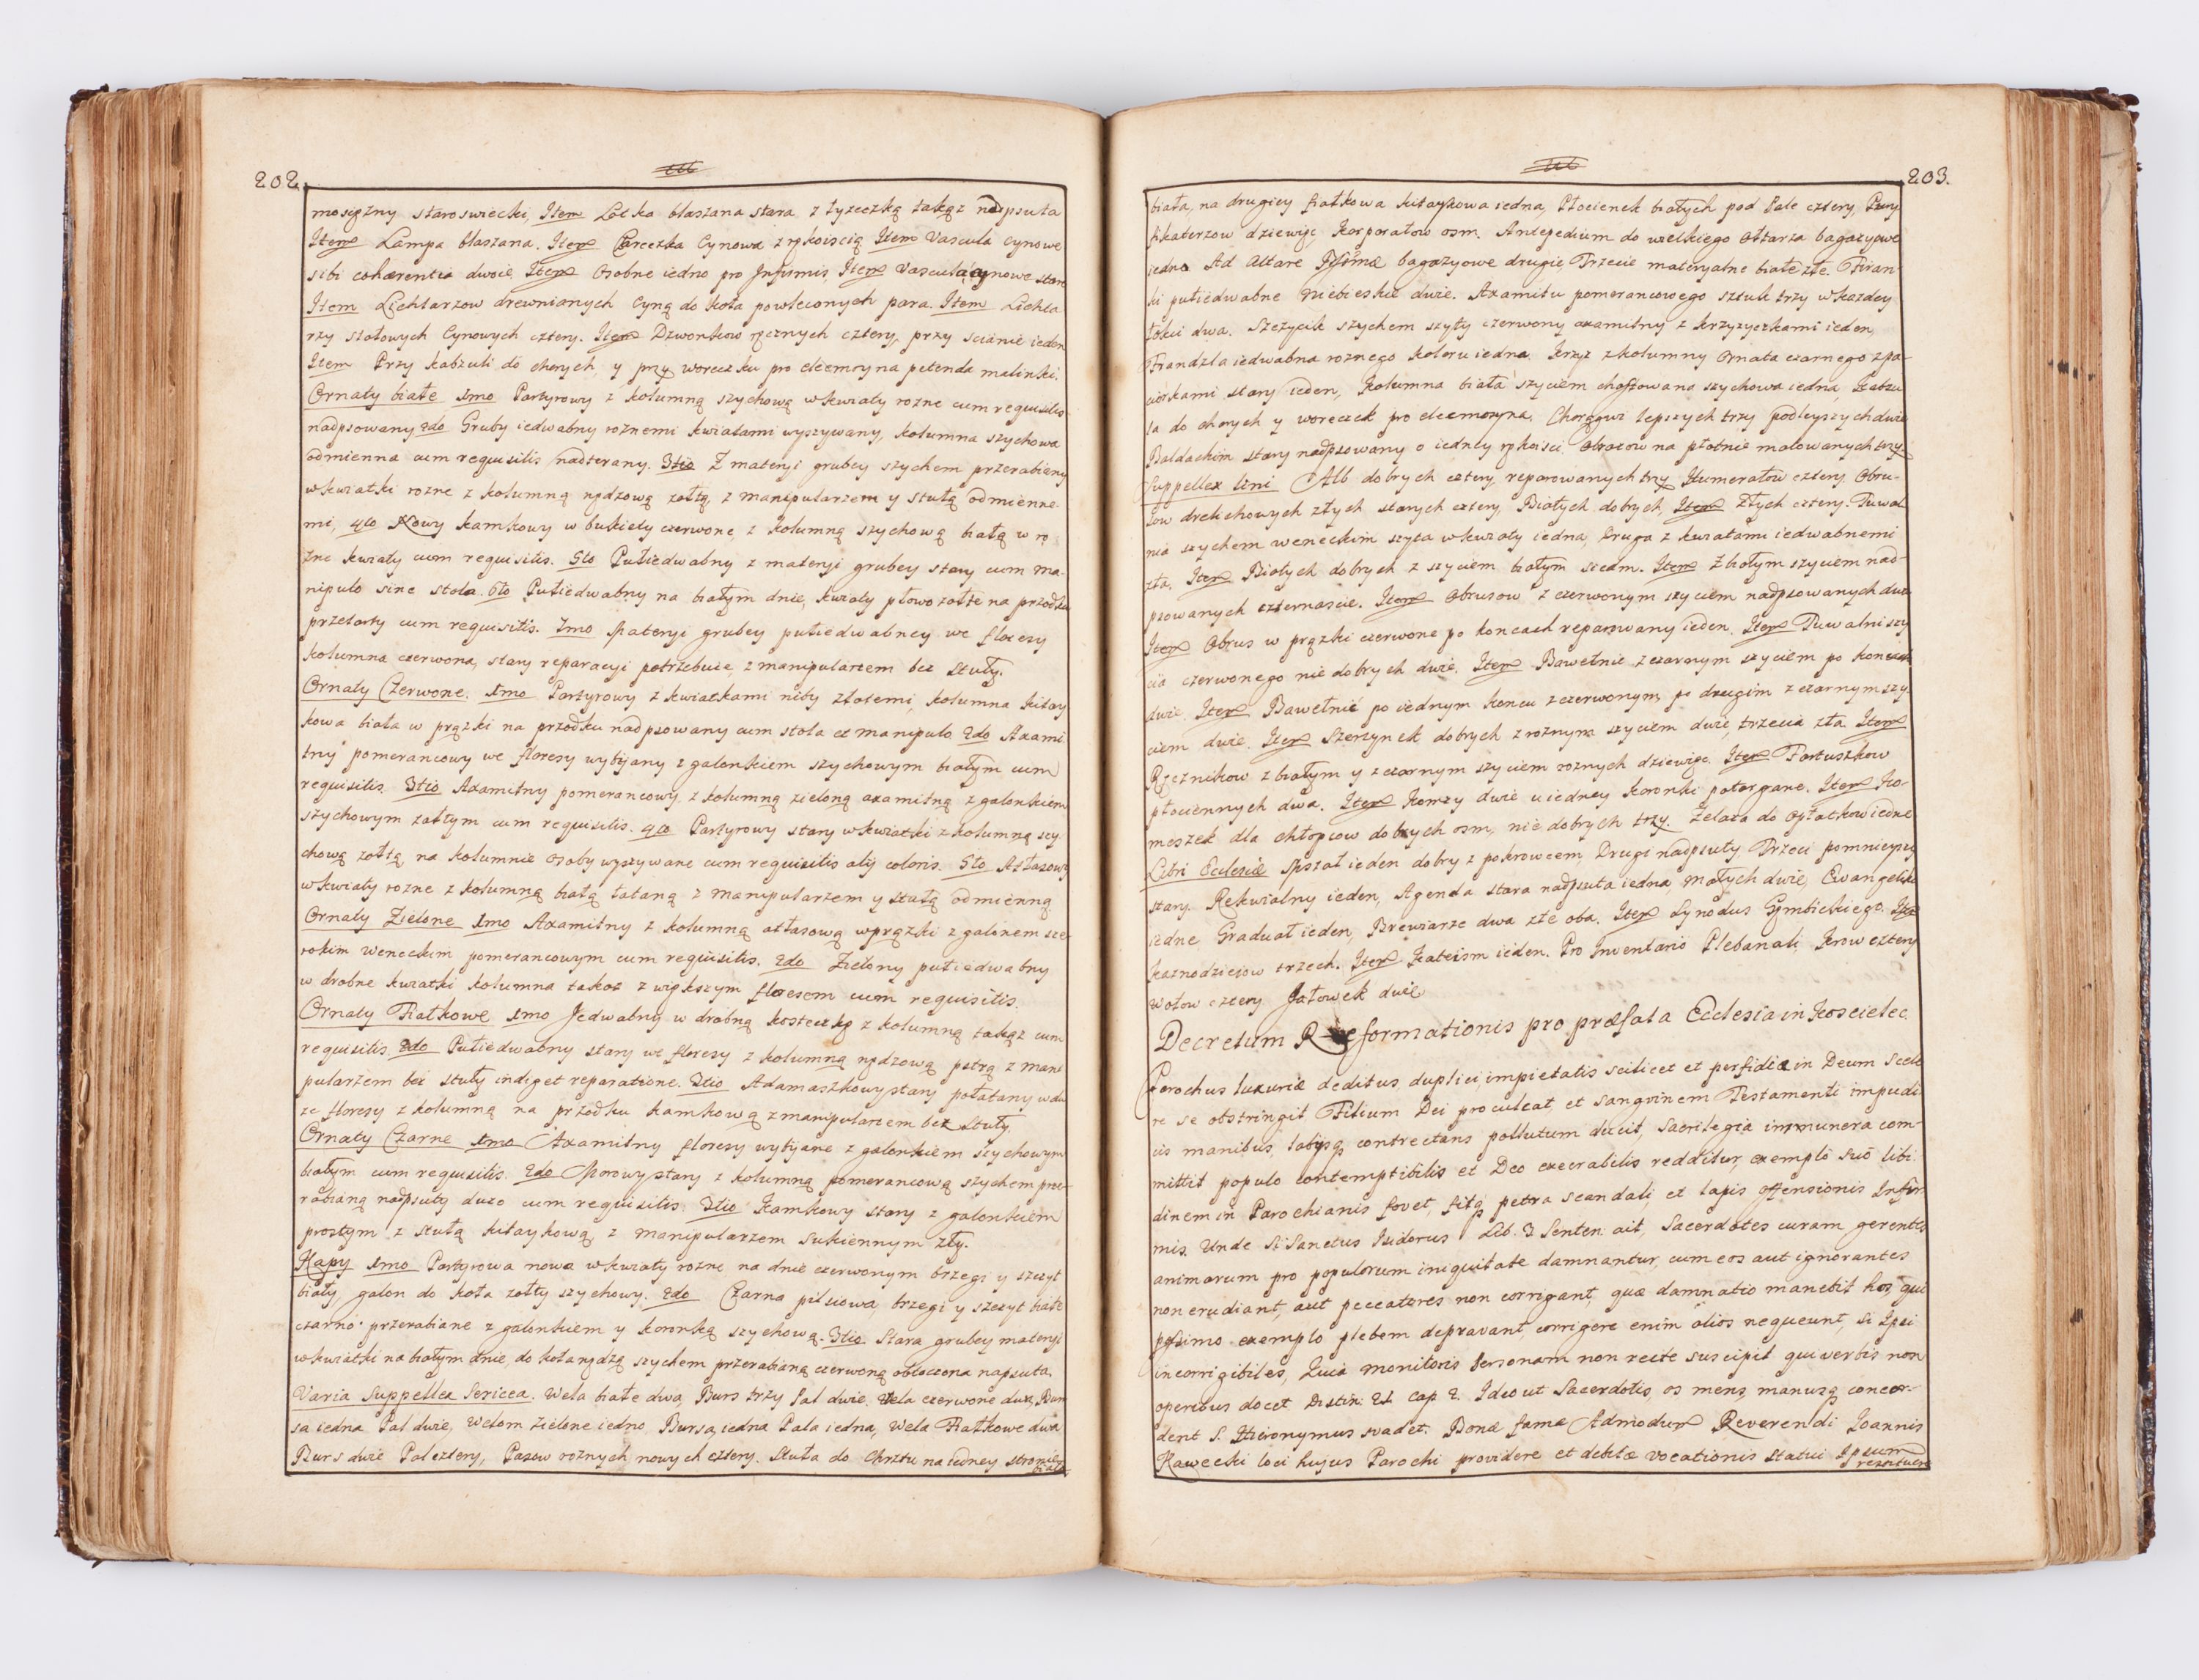 202.
mosiężny staroswiecki, Item Łocka blaszana stara z łyżeczką takąż nadpsuta
Item Lampa blaszana. Item Czarezka Cynowa z rękoiscią Item Vascula Cynowe
sibi cohærentia dwoie, Item Osobne iedno pro Infirmis, Item Vascula cynowe stare
Item Lichtarzow drewnianych Cyną do koła powleconych para. Item Lichta
rzy stołowych Cynowych cztery. Item Dzwonkow ręcznych cztery, przy scianie ieden
Item Przy kabzuli do chorych, y przy woreczku pro eleemoryna petenda malinki.
Ornaty białe 1mo Partyrowy z kolumną szychową w kwiaty rozne cum requisitis
nadpsowany, 2do Gruby iedwabny roznemi kwiatami wyszywany, kolumna szychowa
odmienna cum requisitis nadterany. 3tio Z materyi grubey szychem przerabiany
w kwiatki rozne z kolumną nędzową zołtą, z manipularzem y stułą odmienne
mi, 4to Nowy kamkowy w bukiety czerwone, z kolumną szychową białą w ro
zne kwiaty cum requisitis. 5to Pułiedwabny z materyi grubey stary cum ma
nipulo sine stola. 6to Pułiedwabny na białym dnie, kwiaty płowo zołte na przodku
przetarty cum requisitis. 7mo Materyi grubey pułiedwabney we floresy
kolumna czerwona, stary reparacyi potrzebuie, z manipularzem bez Stuły.
Ornaty Czerwone. 1mo Partyrowy z kwiatkami niby złotemi, kolumna kitay
kowa biała w prążki na przodku nadpsowany cum stola et manipulo 2do Axami
tny pomerancowy we floresy wybijany z galonkiem szychowym białym cum
requisitis. 3tio Axamitny pomerancowy, z kolumną zieloną axamitną z galonkiem
szychowym zołtym cum requisitis. 4to Partyrowy stary w kwiatki z kolumną szy
chową zołtą na kolumnie osoby wyszywane cum requisitis alij coloris. 5to Atłasowy
w kwiaty rozne z kolumną białą łataną z manipularzem y stułą odmienną.
Ornaty Zielone 1mo Axamitny z kolumną atłasową w prążki z galonem sze
rokim weneckim pomerancowym cum requisitis. 2do Zielony pułiedwabny
w drobne kwiatki kolumna takoż z większym floresem cum requisitis.
Ornaty Fiałkowe 1mo Jedwabny w drobną kosteczkę z kolumną takąż cum
requisitis. 2do Pułiedwabny stary we floresy z kolumną nędzową pstrą z mani
pularzem bez stuły indiget reparatione. 3tio Adamaszkowy stary połatany w du
ze floresy z kolumną na przodku kamkową z manipularzem bez Stuły.
Ornaty Czarne 1mo Axamitny floresy wybijane z galonkiem szychowym
białym cum requisitis. 2do Morowy stary z kolumną pomerancową szychem prze
rabianą nadpsuty duzo cum requisitis 3tio Kamkowy stary z galonkiem
prostym z stułą kitaykową, z manipularzem sukiennym zły.
Kapy 1mo Partyrowa nowa w kwiaty rozne na dnie czerwonym brzegi y szczyt
biały, galon do koła zołty szychowy. 2do Czarna pilsiowa, brzegi y szczyt białe
czarno przerabiane z galonkiem y koronką szychową. 3tio Stara grubey materyi
w kwiatki na białym dnie, do koła nędzą szychem przerabianą czerwoną obtoczona napsuta.
Varia Suppellex Sericea. Wela białe dwa, Burs trzy Pal dwie. Wela czerwone dwa, Bur
sa iedna Pal dwie, Welom Zielone iedno, Bursa iedna Pala iedna, Wela Fiałkowe dwa
Burs dwie Pal cztery, Pasow roznych nowych cztery. Stuła do Chrztu na iedney stronie
biała
203.
biała, na drugiey fiałkowa kitaykowa iedna, Płocienek białych pod Pale cztery, Pury
fikaterzow dziewięc, Korporałow osm. Antepedium do wielkiego Ołtarza bagazyowe
iedno Ad Altare Bagazyowe drugie, Trzecie materyalne białe złe. Firan
ki pułiedwabne Niebieskie dwie. Axamitu pomerancowego sztuk trzy w kazdey
łokci dwa. Szczycik szychem szyty czerwony axamitny z krzyzyczkami ieden,
Frandzla iedwabna roznego koloru iedna. Krzyz z kolumny Ornata czarnego z pa-
ciorkami stary ieden, Kolumna biała szyciem choftowana szychowa iedna, Kabzu
la do chorych y woreczek pro eleemoryna. Chorągwi lepszych trzy podleyszych dwie
Baldachim stary nadpsowany o iedney rękoisci. Obrazow na płotnie malowanych trzy.
Suppellex Lini Alb dobrych cztery, reparowanych trzy. Humerałow cztery. Obru-
sow drelichowych złych starych cztery, Białych dobrych, Item Złych cztery. Tuwal
nia szychem weneckim szyta w kwiaty iedna, Druga z kwiatami iedwabnemi
zła. Item Białych dobrych z szyciem białym siedm. Item Z białym szyciem nad-
psowanych czternascie. Item Obrusow z czerwonym szyciem nadpsowanych dwa
Item Obrus w prążki czerwone po koncach reparowany ieden. Item Tuwalni szy
cia czerwonego nie dobrych dwie. Item Bawełnic z czarnym szyciem po koncach
dwie. Item Bawełnic po iednym koncu z czerwonym, po drugim z czarnym szy
ciem dwie. Item Szerzynek dobrych z roznym szyciem dwie, trzecia zła Item
Ręcznikow z białym y z czarnym szyciem roznych dziewięc. Item Fartuszkow
płociennych dwa. Item Komzy dwie u iedney koronki potargane. Item Ko-
meszek dla chłopcow dobrych osm, nie dobrych trzy. Zelaza do opłatkow iedne
Libri Ecclesiæ Mszał ieden dobry z pokrowcem Drugi nadpsuty Trzeci pomnieyszy
stary. Rekwialny ieden, Agenda stara nadpsuta iedna, małych dwie, Ewangeliczki
iedne, Graduał ieden, Brewiarze dwa złe oba. Item Synodus Gembickiego. Item
Kaznodzieiow trzech. Item Kateism ieden. Pro Inventario Plebanali Krow cztery
Wołow cztery Jałowek dwie
Decretum Reformationis pro præfata Ecclesia in Koscielec.
Parochus luxuriæ deditus duplici impietatis scilicet et perfidiæ in Deum Scele
re se obstringit Filium Dei proculcat, et sangvinem Testamenti impudi
cis manibus, labijsq contrectans pollutum ducit, Sacrilegia innumera com-
mittit populo contemptibilis et Deo execrabilis redditur, exemplo suo libi
dinem in Parochianis fovet, fitq petra scandali, et lapis offensionis Infir
mis. Unde S. Sanctus Isidorus Lib. 3 Senten: ait, Sacerdotes curam gerentes
animarum pro populorum iniquitate damnantur, cum eos aut ignorantes
non erudiant, aut peccatores non corrigant, quæ damnatio manebit hos, qui
pessimo exemplo plebem depravant, corrigere enim alios nequeunt, si ipsi
incorrigibiles, Quia monitoris Personam non recte suscipit qui verbis non
operibus docet Distin: 21 Cap. 2. Ideo ut Sacerdotis, os mens, manusq concor-
dent S. Hieronymus svadet. Bonæ famæ Admodum Reverendi Joannis
Kawecki loci hujus Parochi providere et debitæ vocationis statui Ipsum
restituere